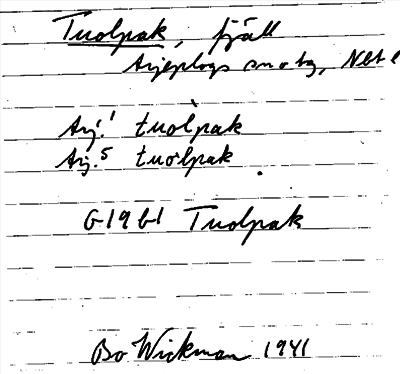 Tuolpak, fjäll
Arjeplogs sn o tg, Nbt
Arj.1 tuòlpak
Arj.5 tuòlpak.
G 19 b1 Tuolpak
Bo Wickman 1941